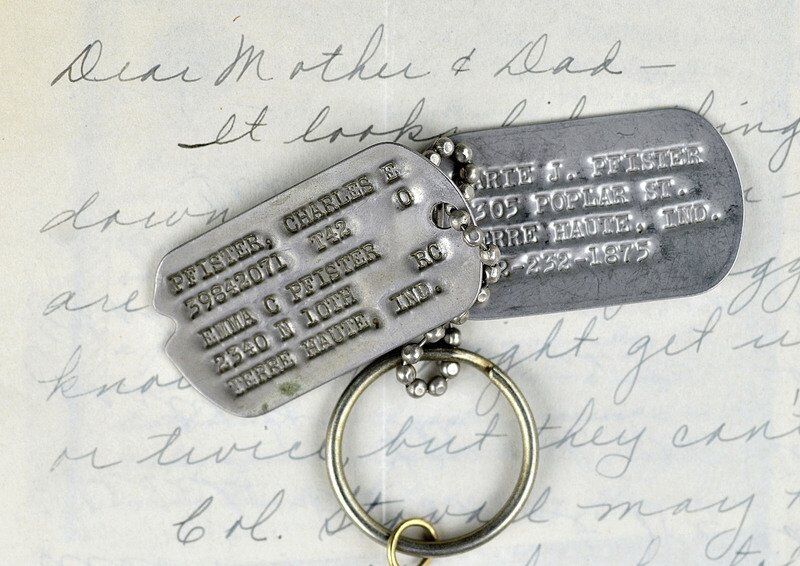 Dear Mother & Dad —
It looks
down
are
ght get u
or twice but they can't
Col. Stowall may
PFISTER, CHARLES E
39842071 T42 O
EMMA C PFISTER RC
2340 N 10TH
TERRE HAUTE, IND.
ARIE J. PFISTER
305 POPLAR ST.
ERRE HAUTE, IND.
2-232-1875